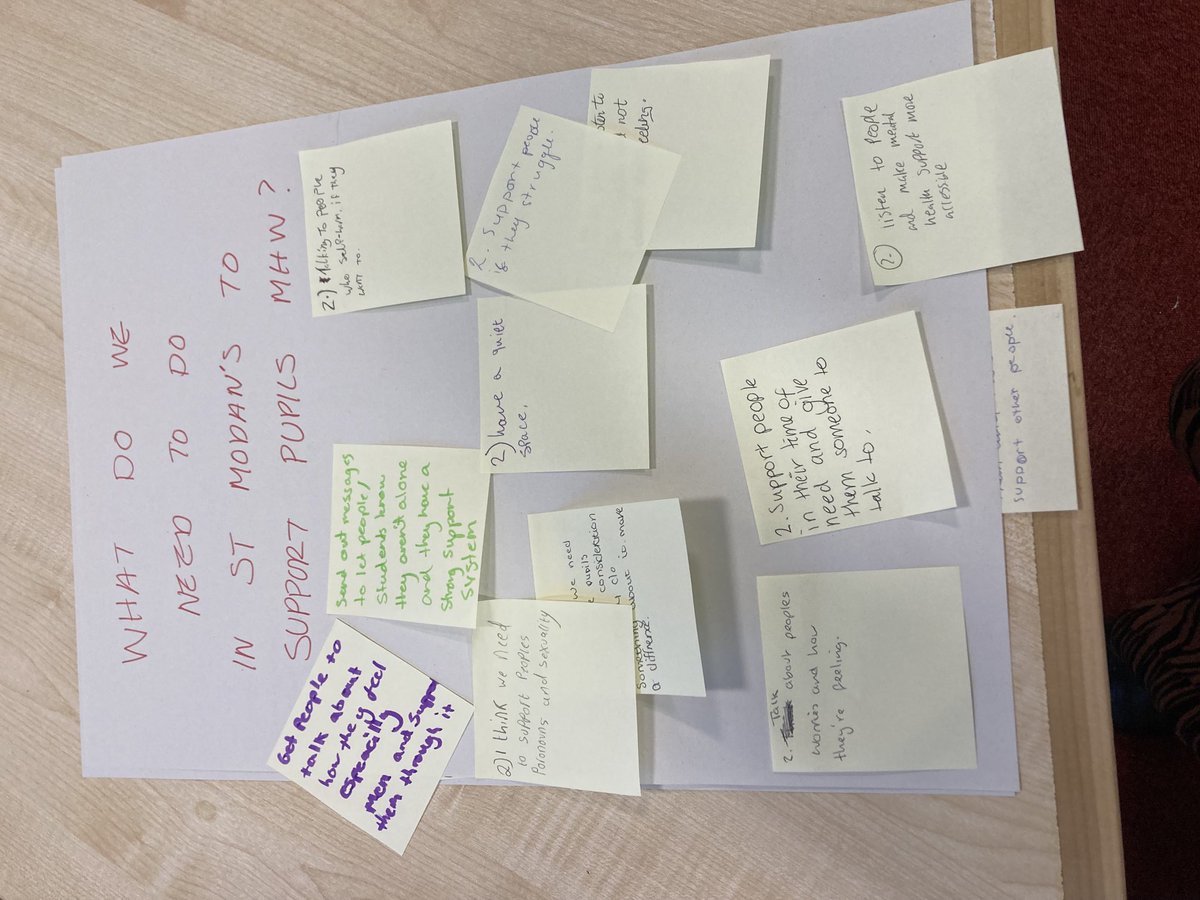 WHAT DO WE
NEED TO DO
IN ST MODAN'S TO
SUPPORT PUPILS MHW?
Get People to
talk about
how they feel
Especially
Men and Support
them through it
Send out messages
to let people/
Students know
they aren't alone
and they have a
strong support
system
2.) talking to people
who self-harm if they
want to.
2) I think we need
to support peoples
Poronouns and sexuality
we need
pupils
consideration
do
something about it make
a diffrence.
2) have a quiet
space.
2. Support people
if they struggle.
to
not
eeling.
2. Talk about peoples
worries and how
they're feeling.
2. Support people
in their time of
need and give
them someone to
talk to.
2. listen to people
and make mental
health support more
accessible
support other people.